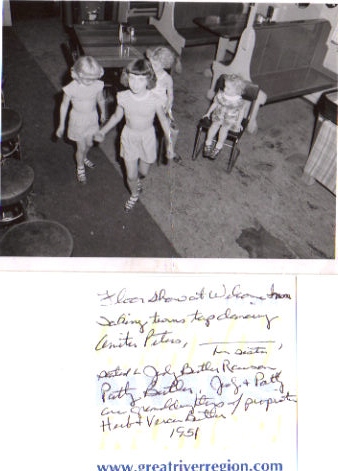 Floor Show at Welcome Inn
Taking turns tap dancing
Anita Peters,
her sister,
seated is Judy Butler
Patty Butler, Judy & Patty
are granddaughters of
Herb & Butler
1951
www.greatriverregion.com